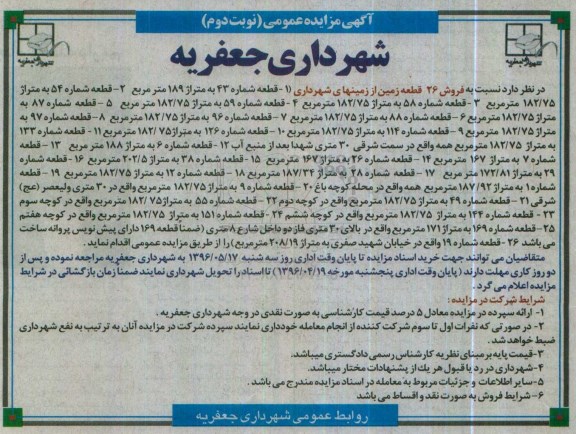 آگهی مزایده عمومی (نوبت دوم)
شهرداری جعفریه
در نظر دارد نسبت به فروش ۲۶ قطعه زمین از زمینهای شهرداری (۱- قطعه شماره ۴۳ به متراژ ۱۸۹ متر مربع ۲- قطعه شماره ۵۴ به متراژ
۱۸۲/۷۵ مترمربع ۳- قطعه شماره ۵۸ به متراژ ۱۸۲/۷۵ مترمربع ۴- قطعه شماره ۵۹ به متراژ ۱۸۲/۷۵ متر مربع ۵- قطعه شماره ۸۷ به
متراژ ۱۸۲/۷۵ مترمربع ۶- قطعه شماره ۸۸ به متراژ ۱۸۲/۷۵ مترمربع ۷- قطعه شماره ۹۶ به متراژ ۱۸۲/۷۵ مترمربع ۸- قطعه شماره ۹۷ به
متراژ ۱۸۲/۷۵ مترمربع ۹- قطعه شماره ۱۱۴ به متراژ ۱۸۲/۷۵ مترمربع ۱۰- قطعه شماره ۱۲۶ به متراژ ۱۸۲/۷۵ مترمربع ۱۱- قطعه شماره ۱۳۳
به متراژ ۱۸۲/۷۵ مترمربع همه واقع در سمت شرقی ۳۰ متری شهدا بعد از منبع آب ۱۲- قطعه شماره ۶ به متراژ ۱۸۸ متر مربع ۱۳- قطعه
شماره ۷ به متراژ ۱۶۷ مترمربع ۱۴- قطعه شماره ۲۶ به متراژ ۱۶۷ مترمربع ۱۵- قطعه شماره ۳۸ به متراژ ۲۰۲/۵ مترمربع ۱۶- قطعه شماره
۲۹ به متراژ ۱۷۲/۸۱ متر مربع ۱۷- قطعه شماره ۲۸ به متراژ ۱۸۷/۳۴ مترمربع ۱۸- قطعه شماره ۱۲ به متراژ ۱۸۲/۷۵ مترمربع ۱۹- قطعه
شماره ۱ به متراژ ۱۸۷/۹۲ مترمربع همه واقع در محله کوچه باغ ۲۰- قطعه شماره ۹ به متراژ ۱۸۲/۷۵ مترمربع واقع در ۳۰ متری ولیعصر (عج)
شرقی ۲۱- قطعه شماره ۴۹ به متراژ ۱۸۲/۷۵ مترمربع واقع در کوچه دوم ۲۲- قطعه شماره ۵۵ به متراژ ۱۸۲/۷۵ مترمربع واقع در کوچه سوم
۲۳- قطعه شماره ۱۴۴ به متراژ ۱۸۲/۷۵ مترمربع واقع در کوچه ششم ۲۴- قطعه شماره ۱۵۱ به متراژ ۱۸۲/۷۵ مترمربع واقع در کوچه هفتم
۲۵- قطعه شماره ۱۶۹ به متراژ ۱۷۱ مترمربع واقع در بالای ۳۰ متری فاز دو داخل شارع ۸ متری (ضمنا قطعه ۱۶۹ دارای پیش نویس پروانه ساخت
می باشد ۲۶- قطعه شماره ۱۹ واقع در خیابان شهید صفری به متراژ ۲۰۸/۱۹ مترمربع) را از طریق مزایده عمومی اقدام نماید.
متقاضیان می توانند جهت خرید اسناد مزایده تا پایان وقت اداری روز سه شنبه ۱۳۹۶/۰۵/۱۷ به شهرداری جعفریه مراجعه نموده و پس از
دو روز کاری مهلت دارند (پایان وقت اداری پنجشنبه مورخه ۱۳۹۶/۰۴/۱۹) تا اسناد را تحویل شهرداری نمایند ضمنا زمان بازگشائی در شرایط
مزایده اعلام می گردد.
شرایط شرکت در مزایده:
۱- ارائه سپرده در مزایده معادل ۵ درصد قیمت کارشناسی به صورت نقدی در وجه شهرداری جعفریه.
۲- در صورتی که نفرات اول تا سوم شرکت کننده از انجام معامله خودداری نمایند سپرده شرکت در مزایده آنان به ترتیب به نفع شهرداری
ضبط خواهد شد.
۳- قیمت پایه بر مبنای نظریه کارشناس رسمی دادگستری میباشد.
۴- شهرداری در رد یا قبول هر یک از پشنهادات مختار میباشد.
۵- سایر اطلاعات و جزئیات مربوط به معامله در اسناد مزایده مندرج می باشد.
۶- شرایط فروش به صورت نقد و اقساط می باشد
روابط عمومی شهرداری جعفریه